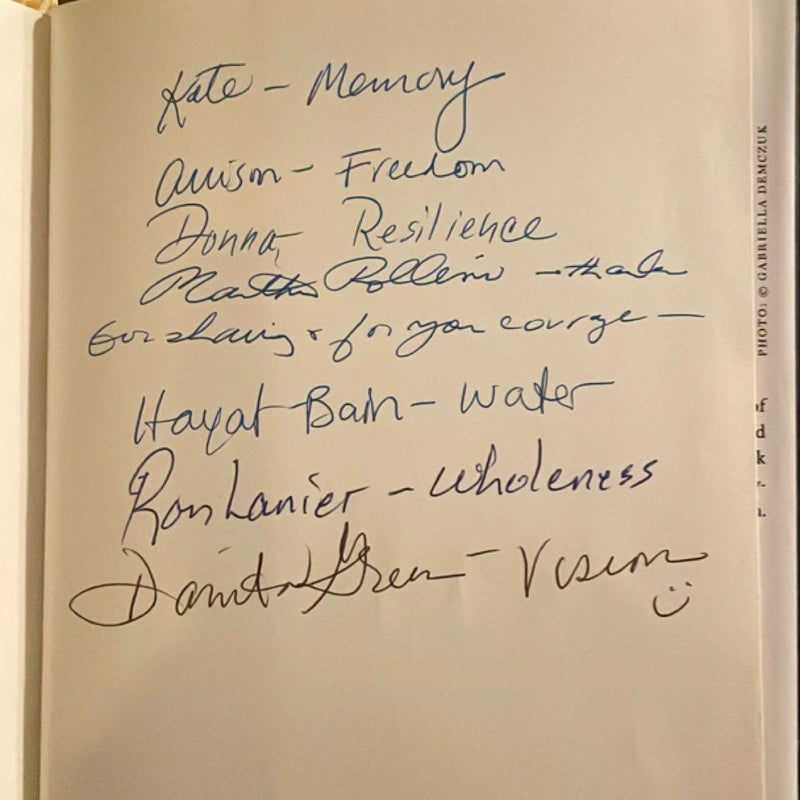 Kate - Memory
Allison - Freedom
Donna, Resilience
Martha Rollins - thanks
for sharing & for your courage -
Hayat Bain - water
Ron Lanier - wholeness
Danita Green - Vision
PHOTO: © GABRIELLA DEMCZUK
of
d
k
r-